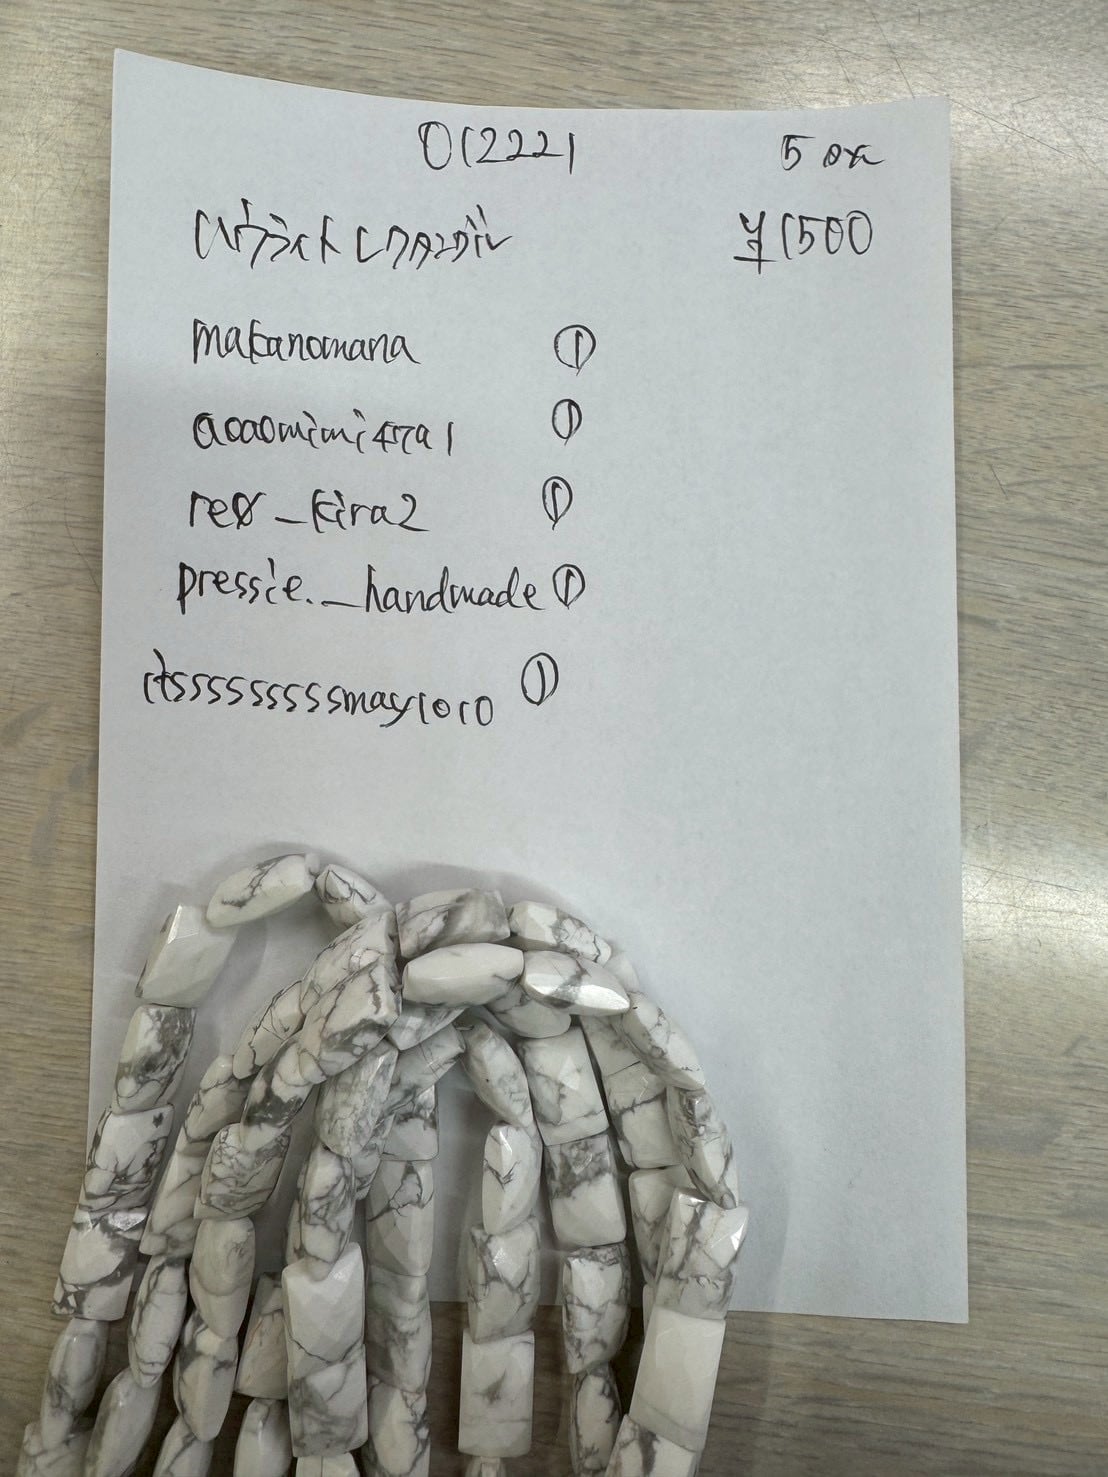 012221 5本
ハウライトレクタングル ¥1500
makanomana ①
aoaomimi ①
re0_kira2 ①
pressie._handmade ①
itsssssssssmay1010 ①